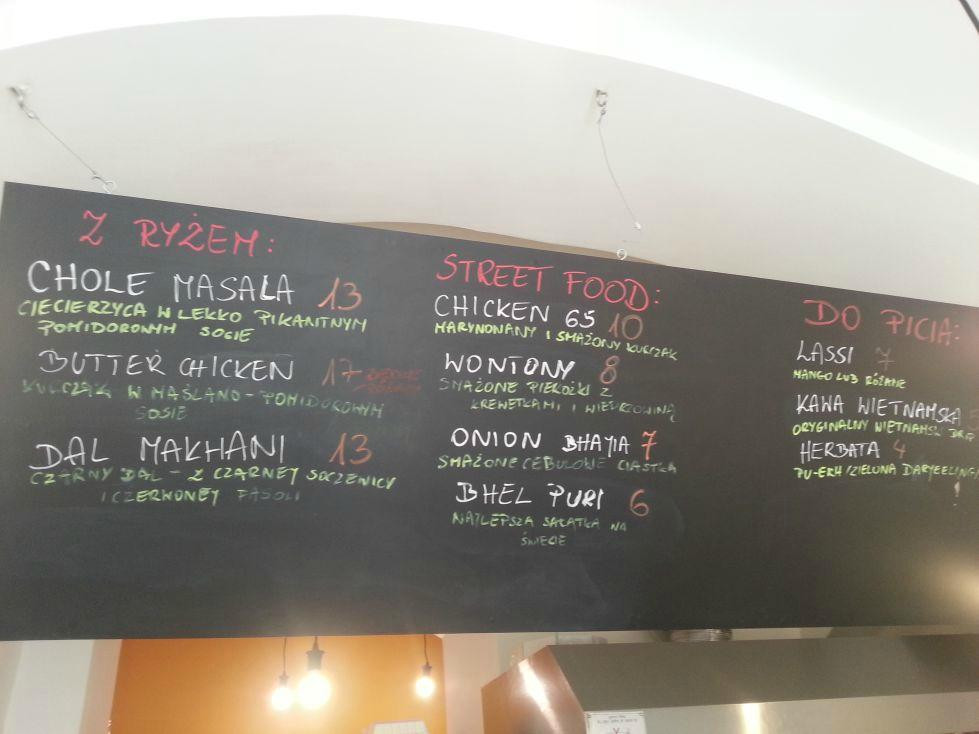 Z RYŻEM:
CHOLE MASALA 13
CIECIERZYCA W LEKKO PIKANTNYM
POMIDOROWYM SOSIE
BUTTER CHICKEN 17
KURCZAK W MAŚLANO-POMIDOROWYM
SOSIE
DAL MAKHANI 13
CZARNY DAL - Z CZARNEJ SOCZEWICY
I CZERWONEJ FASOLI
STREET FOOD:
CHICKEN 65 10
MARYNOWANY I SMAŻONY KURCZAK
WONTONY 8
SMAŻONE PIEROŻKI Z
KREWETKAMI I WIEPRZOWINĄ
ONION BHAYIA 7
SMAŻONE CEBULOWE CIASTKA
BHEL PURI 6
NAJLEPSZA SAŁATKA NA
ŚWIECIE
DO PICIA:
LASSI 7
MANGO LUB RÓŻANE
KAWA WIETNAMSKA
ORYGINALNY WIETNAMSKI
HERBATA 4
PU-ERH/ZIELONA